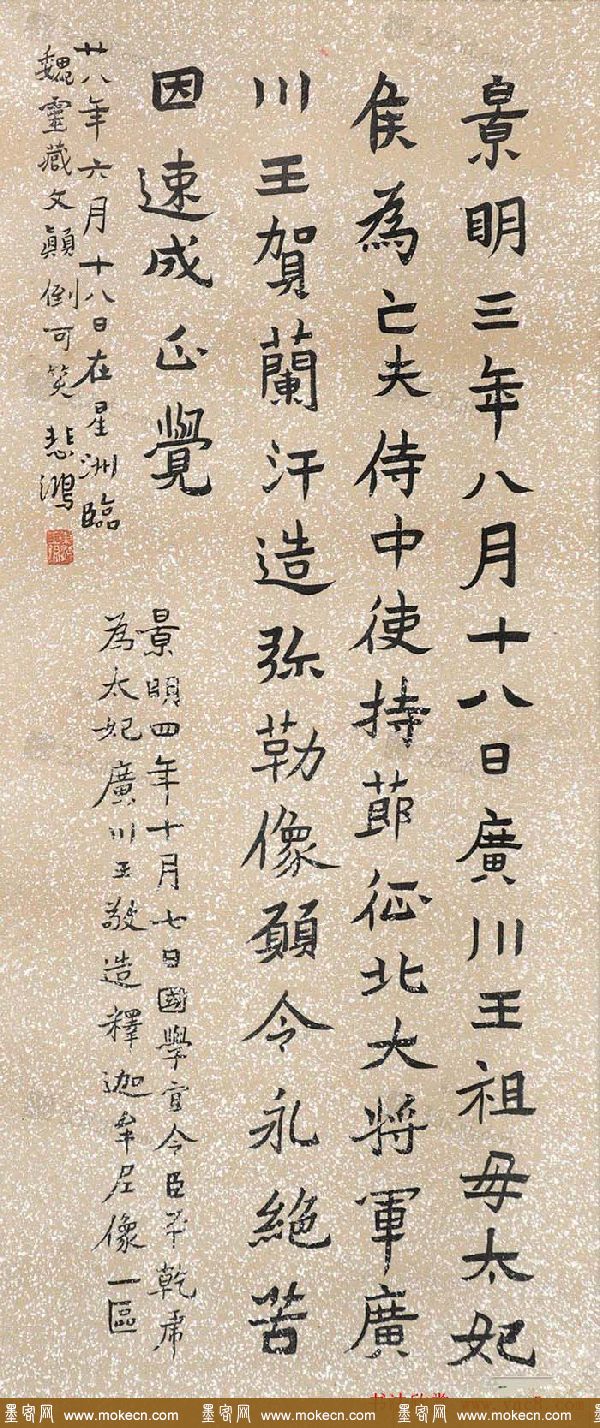 景明三年八月十八日廣川王祖母太妃
侯為亡夫侍中使持節征北大將軍廣
川王賀蘭汗造弥勒像願令永絕苦
因速成正覺
景明四年十月七日國學官令臣平乾虎
為太妃廣川王敬造釋迦牟尼像一區
廿八年六月十八日在星洲臨
魏靈藏文顛倒可笑 悲鴻
墨客网 www.mokecn.com 墨客网 www.mokecn.com 墨客网 www.mokecn.com